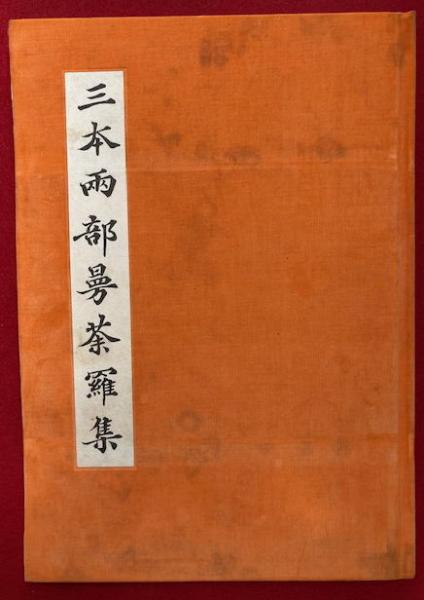 三本兩部曼荼羅集